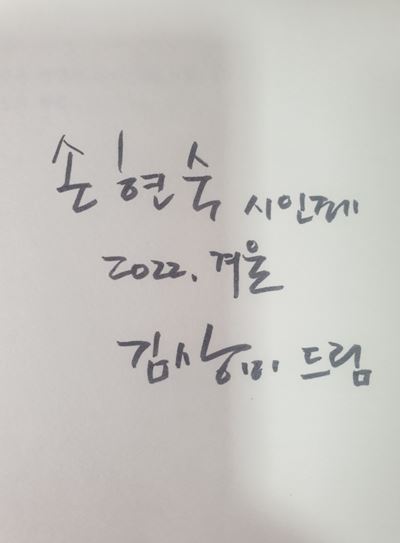 손현숙 시인께
2022. 겨울
김상미 드림